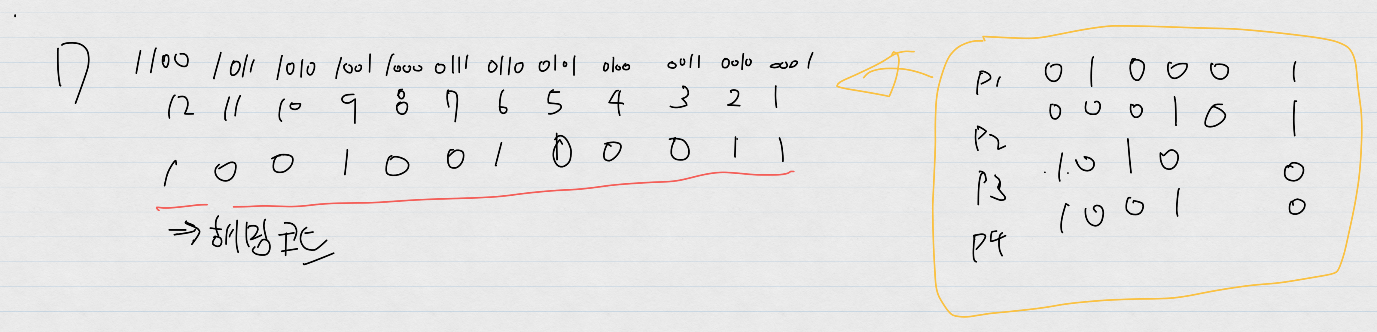 1) 1100 1011 1010 1001 1000 0111 0110 0101 0100 0011 0010 0001
12 11 10 9 8 7 6 5 4 3 2 1
1 0 0 1 0 0 1 0 0 0 1 1
⇒ 해밍코드
P1 0 1 0 0 0 1
P2 0 0 0 1 0 1
P3 1 0 1 0 0
P4 1 0 0 1 0